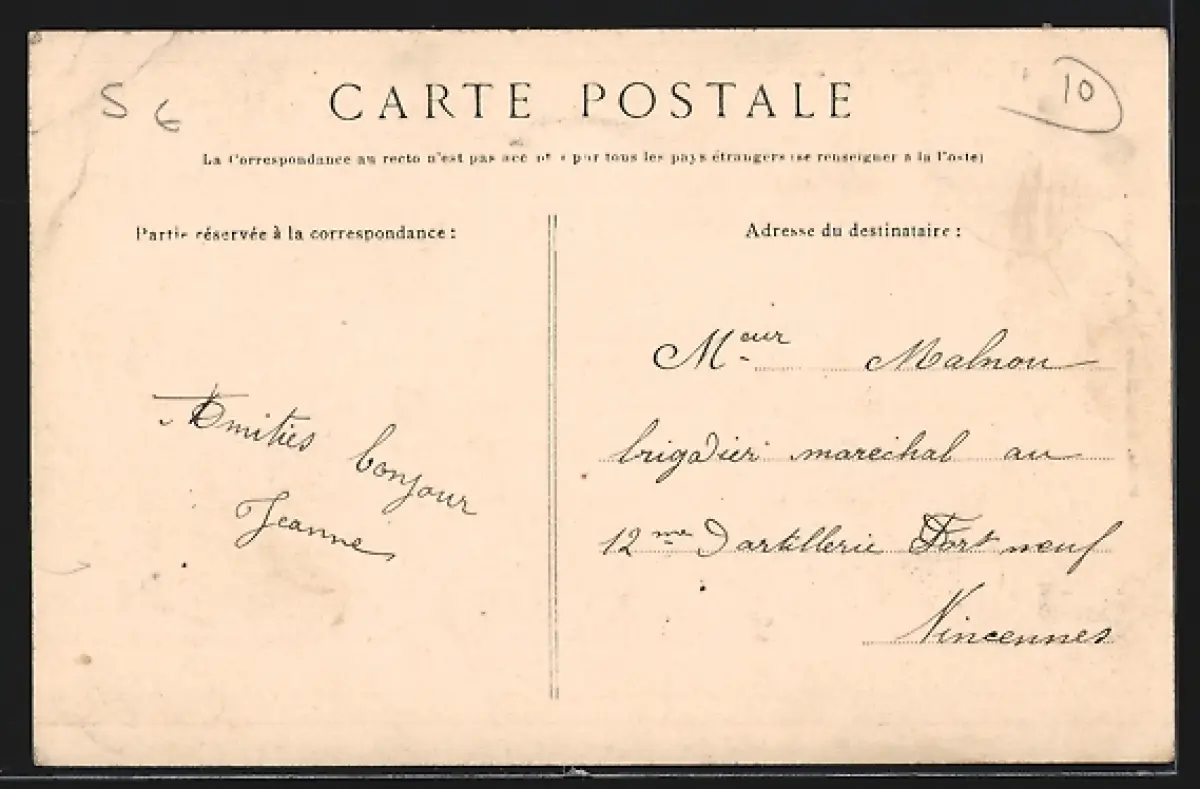 S 6
CARTE POSTALE
10
La Correspondance au recto n'est pas acc pt e par tous les pays étrangers (se renseigner à la Poste)
Partie réservée à la correspondance :
Amitiés bonjour
Jeanne
Adresse du destinataire :
Meur Malnou
brigadier marechal au
12me Dartillerie Fort neuf
Vincennes